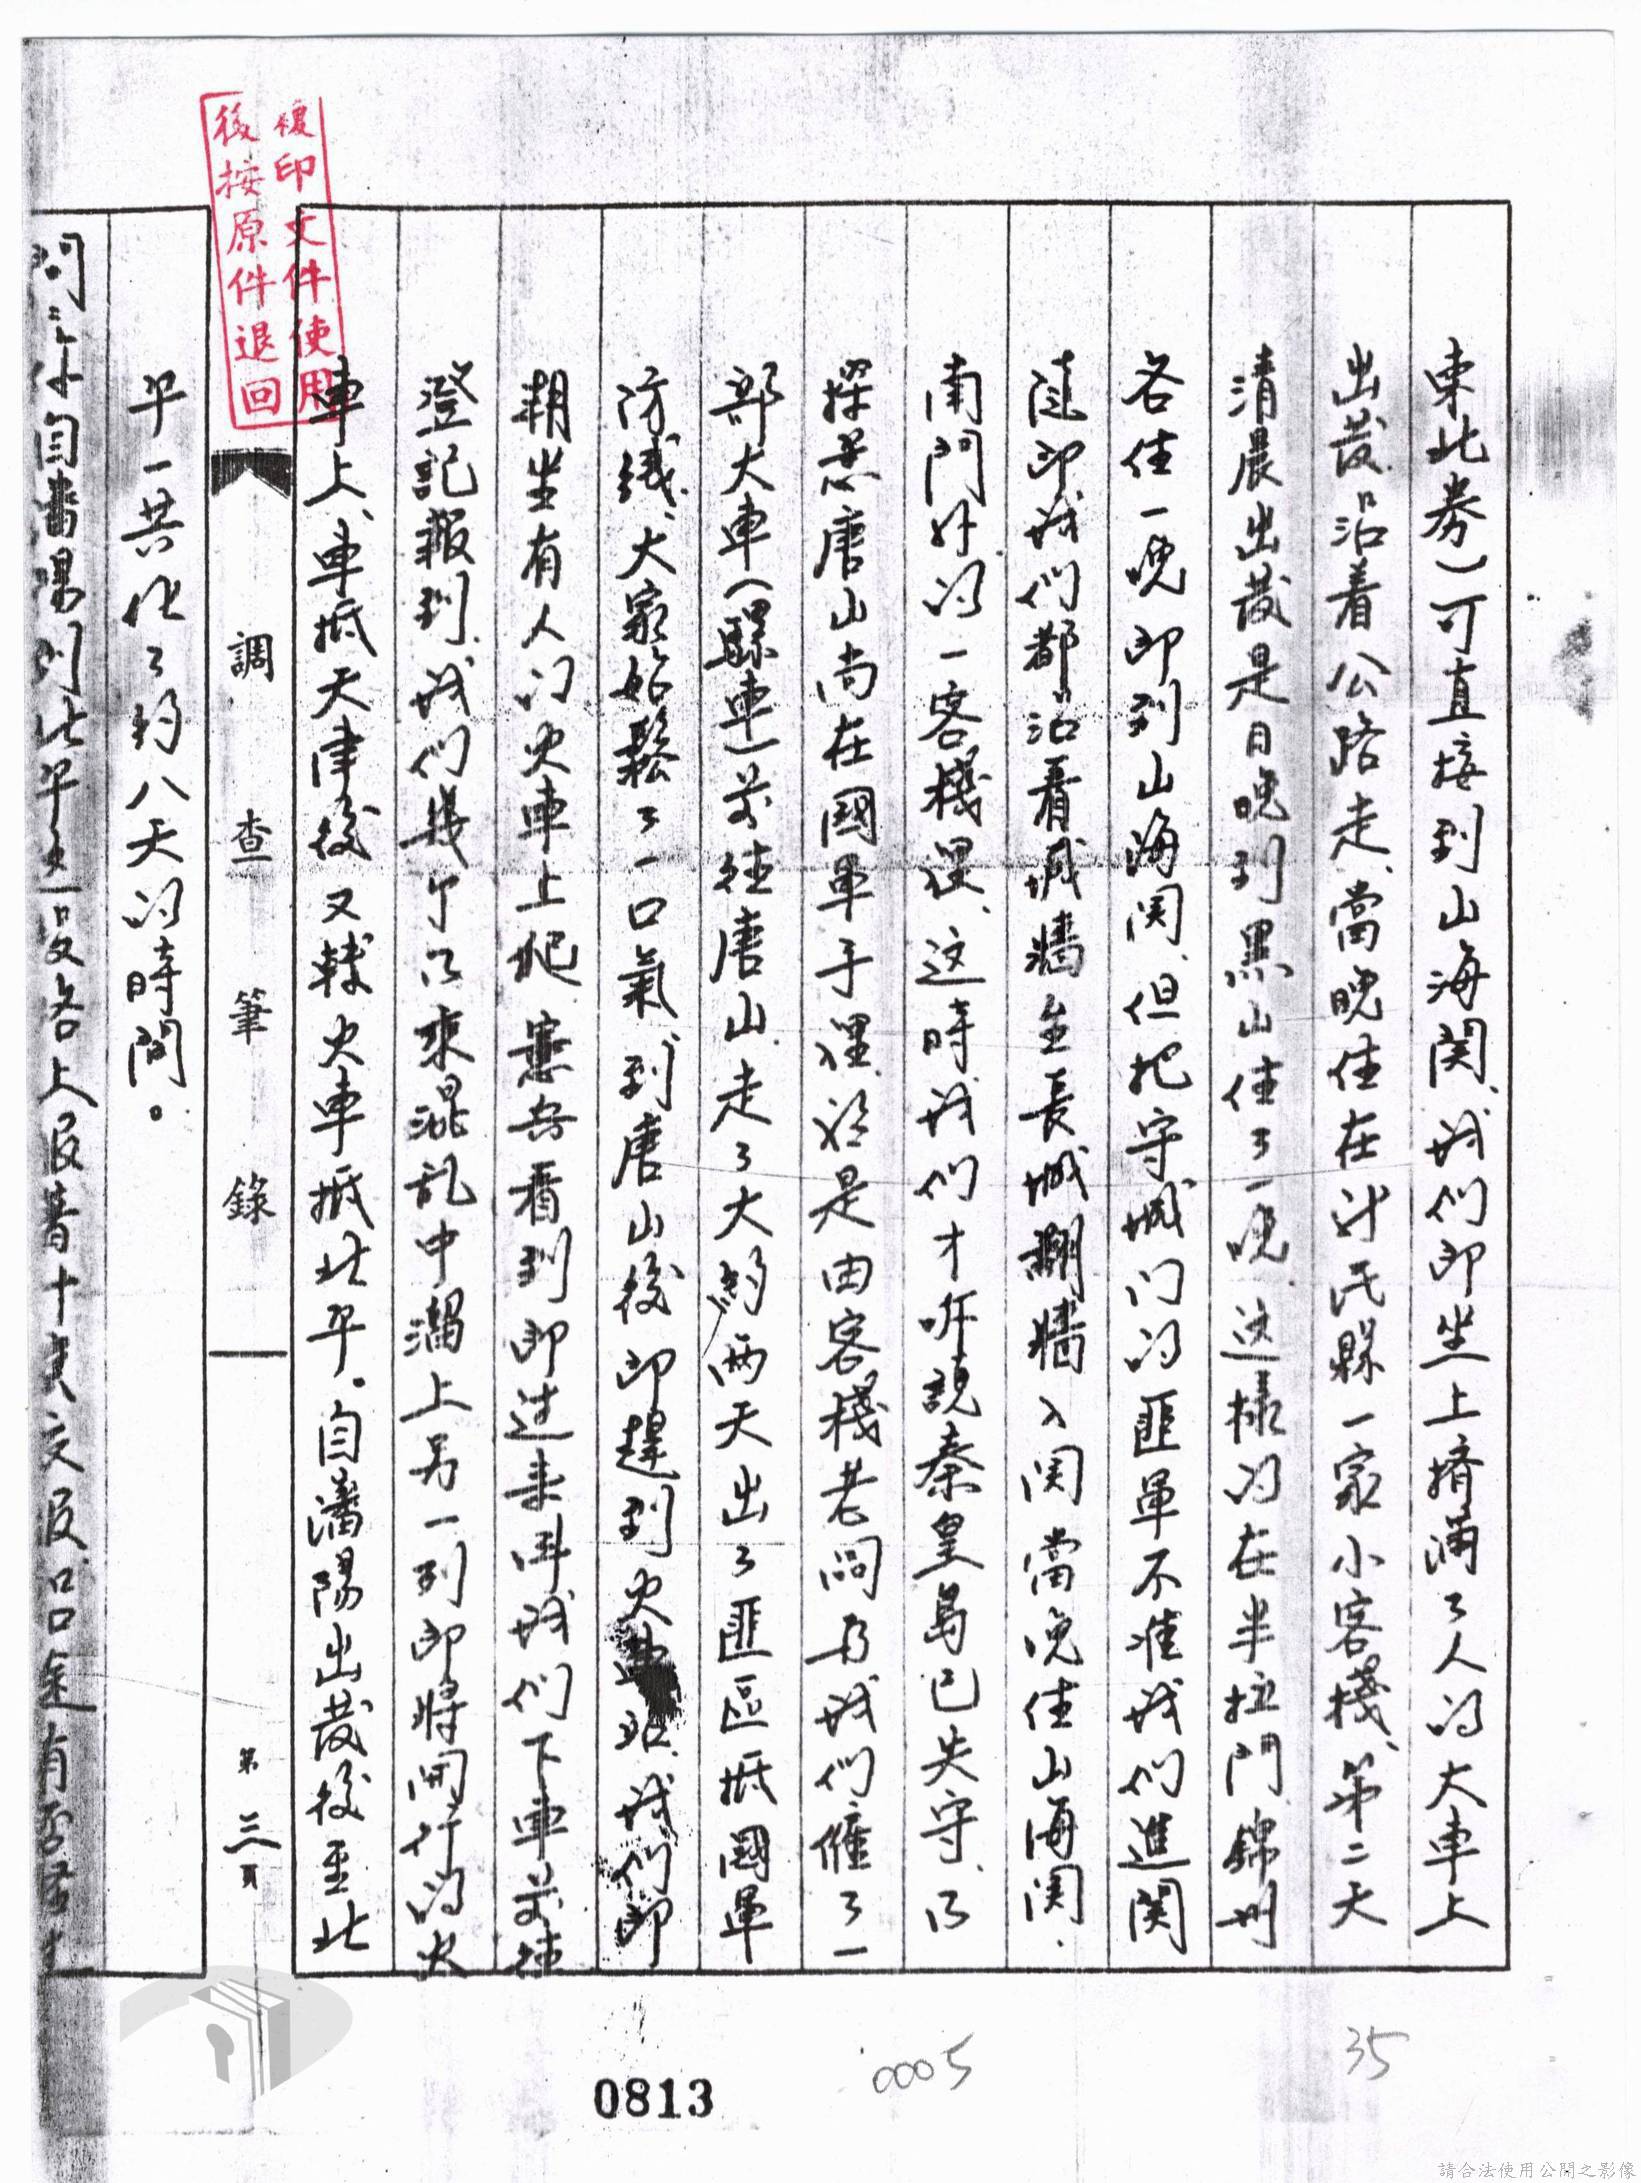 東北券)可直接到山海関、我們即坐上擠滿了人的大車上
出發沿着公路走、當晚住在新民縣一家小客棧、第二天
清晨出發是日晚到黑山住了一晚、这樣的在半拉門錦州
各住一晚即到山海関、但把守城门的匪軍不准我們進関
隨即我們都沿着城牆至長城捌牆入関當晚住山海関.
南門外的一客棧裡、这時我們才听說秦皇島已失守、只
探悉唐山尚在國軍手裡於是由客棧老闆为我們僱了一
部大車(騾車)前往唐山走了大約两天出了匪區抵國軍
防线、大家始鬆了一口氣、到唐山後即趕到火車站、我們即
朝坐有人的火車上爬憲兵看到即过来叫我們下車前往
登記報到、我們幾个只乘混乱中溜上另一列即將開行的火
車上、車抵天津後又轉火車抵北平。自瀋陽出發後至北
平一共化了約八天的時間。
調查筆錄
第三頁
問:你自瀋陽到北平
複印文件使用
後按原件退回
0813
0005
35
請合法使用公開之影像